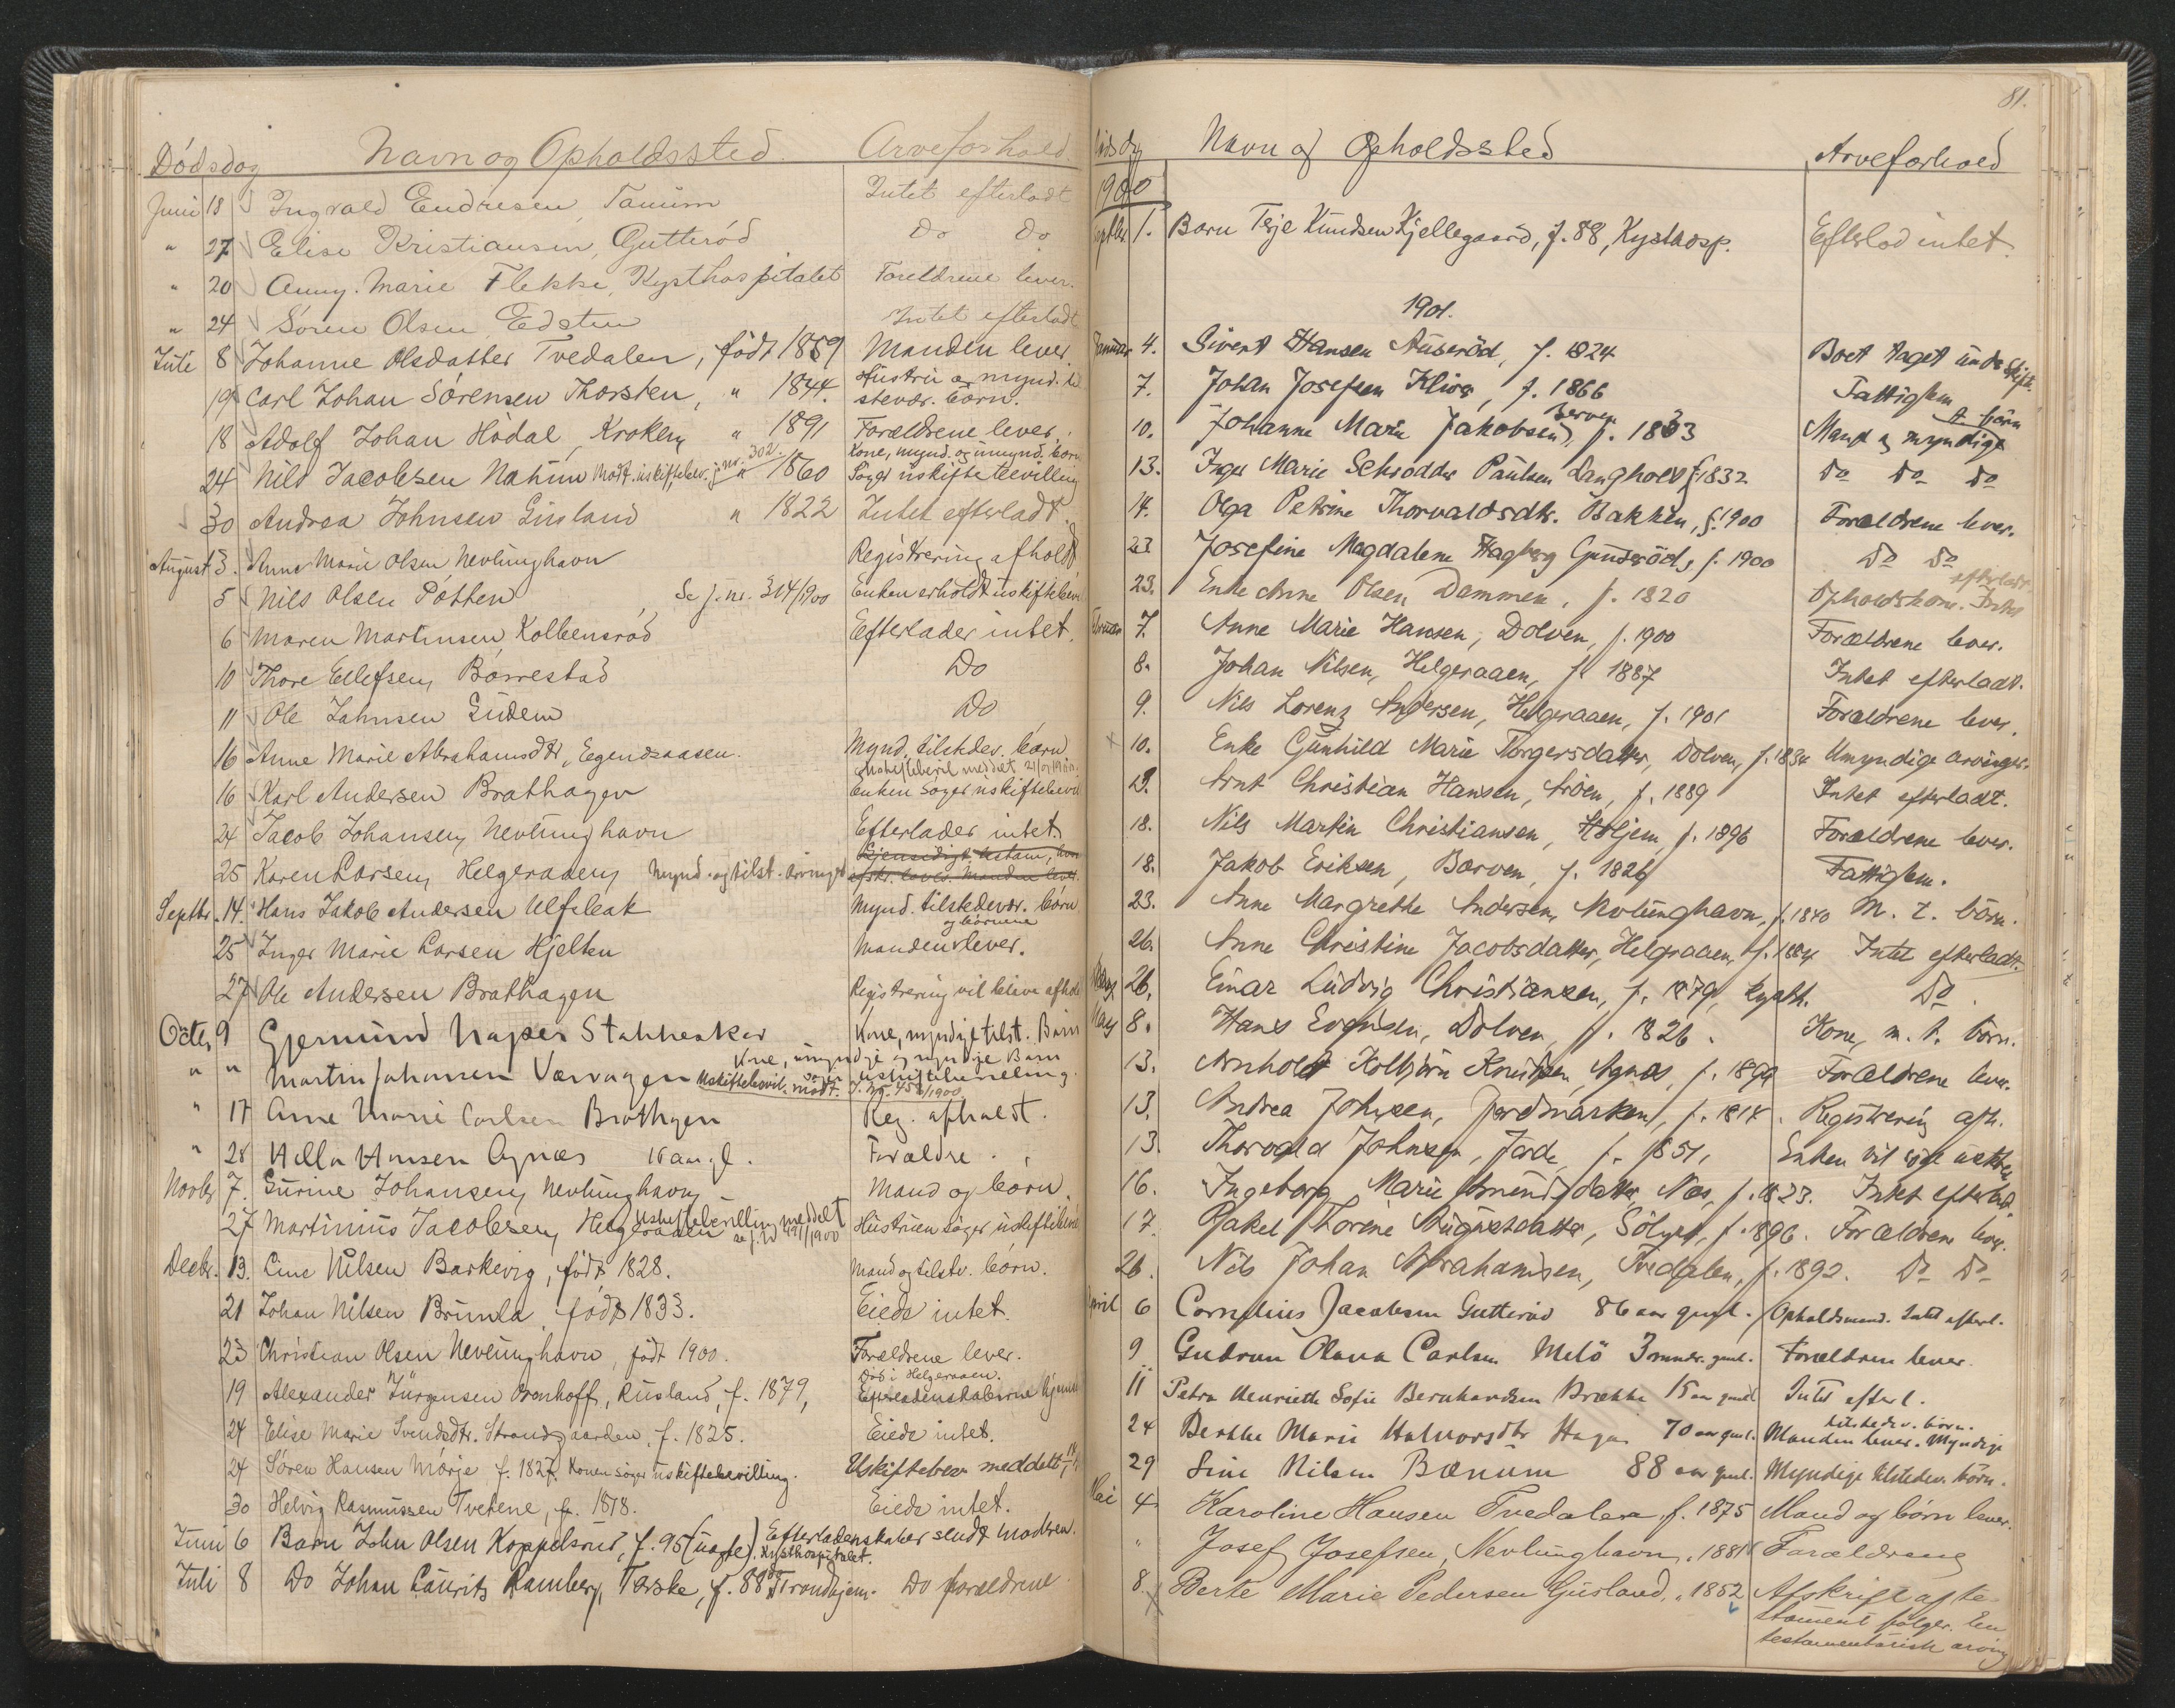 Dödsdag Navn og Opholdssted. Arveforhold.
Juni 18 Ingvald Endresen, Tanum Intet efterladt
" 27 Elise Kristiansen, Gutteröd Do Do
" 20 Anny Marie Flekke, Kysthospitalet Forældrene lever.
" 24 Sören Olsen Edsten Intet efterladt
Juli 8 Johanne Olsdatter Tvedalen, född 1859 Manden lever
19 Carl Johan Sörensen Thorsten, " 1844. Hustru og mynd. til
stevær. börn.
18 Adolf Johan Hödal, Kroken " 1891 Forældrene lever.
24 Nils Jacobsen Nahim Modt. uskiftebev. j. nr. 302. " 1860 Kone, mynd. og umynd. börn
Söger uskiftebevilling
30 Andrea Johnsen Gusland " 1822 Intet efterladt.
August 3. Anne Marie Olsen Nevlunghavn Registrering afholdt
5 Nils Olsen Potten Se j. nr. 314/1900 Enken erholdt uskiftebev.
6 Maren Martinsen Kolbensröd Efterlader intet.
10 Thore Ellefsen, Börrestad Do
11 Ole Johnsen Gudem Do
16 Anne Marie Abrahamsdtr, Eegendsaasen. Mynd. tilstedev. børn
Uskiftebevil. meddelt 21/9 1900.
16 Karl Andersen Brathagen Enken söger uskiftebevil
24 Jacob Johansen, Nevlunghavn Efterlader intet.
Gjensidigt testam.,
25 Karen Larsen, Helgeraaen, Mynd. og tilst. arvinger Manden lever.
Septbr. 14. Hans Jakob Andersen Ulfsbak Mynd. tilstedevær. börn
25 Inger Marie Larsen Hjelten Manden og börnene lever.
27 Ole Andersen Brathagen Registrering vil blive afhol
Octbr. 9 Gjermund Naper Stakkesker Kone, myndige tilst. Børn
" " Martin Johansen Værvagen Uskiftebevil. modt. Kone, umyndige og myndige Børn
uskiftebevilling. J. Nr. 452/1900
" 17 Anne Marie Carlsen Brathagen Reg. afholdt.
" 28 Hilla Hansen Agnæs 16 aar gl. Forældre.
Novbr. 7. Gurine Johansen, Nevlunghavn, Mand og börn.
27 Martinius Jacobsen, Helgeraaen Uskiftebevilling meddelt se j. nr 491/1900 Hustruen söger uskiftebevil
Decbr. 13. Line Nilsen Barkevig, födt 1828. Mand og tilstv. börn.
21 Johan Nilsen Brunla, födt 1833. Eiede intet.
23 Christian Olsen Nevlunghavn, födt 1900. Forældrene lever.
Död i Helgeraaen.
19 Alexander Jürgensen Oronhoff, Rusland, f. 1879, Efterladenskaberne hjem
24 Elise Marie Svendsdtr. Strandgaarden, f. 1825. Eiede intet.
24 Sören Hansen Mörje f. 1827. Konen söger uskiftebevilling. Uskiftebev. meddelt
30 Helvig Rasmussen Tvetene, f. 1818. Eiede intet.
Juni 6 Barn John Olsen Koppelsrud, f. 95 (uægte), Kysthospitalet. Efterladenskaber sendt moderen.
Juli 8 Do Johan Laurits Ramberg, Terske, f. 88 Trondhjem. Do forældrene.
81.
Dödsdag Navn og Opholdssted Arveforhold
1900
Septbr. 1. Barn Terje Knudsen Kjellegaard, f. 88, Kysthosp. Efterlod intet.
1901.
Januar 4. Sivert Hansen Auseröd, f. 1824 Boet taget under Skifte.
7. Johan Josefsen Kliva, f. 1866 Fattiglem
10. Johanne Marie Jakobsen, Berven f. 1833 Mand og myndige t. börn
13. Inger Marie Schrödder Paulsen Langholt f. 1832 Do Do Do
14. Olga Petrine Thorvaldsdtr. Bakken, f. 1900 Forældrene lever.
23 Josefine Magdalene Hagberg Gunderöd, f. 1900 Do Do
23. Enke Anne Olsen Dammen, f. 1820 Opholdskone. Intet efterladt.
Februar 7. Anne Marie Hansen, Dolven, f. 1900 Forældrene lever.
8. Johan Nilsen, Helgeraaen, f. 1887 Intet efterladt.
9. Nils Lorenz Andersen, Helgeraaen, f. 1901 Forældrene lever.
x 10. Enke Gunhild Marie Torgersdatter, Dolven, f. 1834 Umyndige arvinger.
13. Arnt Christian Hansen, Aröen, f. 1889 Intet efterladt.
18. Nils Martin Christiansen, Holjem, f. 1896 Forældrene lever.
18. Jakob Eriksen, Barven, f. 1826 Fattiglem.
23. Anne Margrethe Andersen, Nevlunghavn, f. 1840 M. t. börn.
26. Anne Christine Jacobsdatter, Helgeraaen, f. 1884 Intet efterladt.
26. Einar Ludvig Christiansen, f. 1879, Kysth. Do.
Marts 8. Hans Evensen, Dolven, f. 1826. Kone, m. t. börn.
13. Arnholdt Kolbjörn Knutsen, Agnæs, f. 1899 Forældrene lever.
13. Andrea Johnsen, Jordmarken, f. 1814. Registrering afh.
13. Thorvald Johnsen, Jorde, f. 1851, Enken vil söge uskiftebev.
16. Ingeborg Marie Amundsdatter, Næs, f. 1823. Intet efterladt.
17. Rakel Thorine Augustdatter, Sölyst, f. 1896. Forældrene lever.
26. Nils Johan Abrahamsen, Tvedalen, f. 1892. Do Do
April 6 Cornelius Jacobsen Gutteröd 86 aar gml. Opholdsmand. Intet efterl.
9 Gudrun Olava Carlsen Melö 3 mndr. gml. Forældrene lever.
11 Petra Henriette Sofie Bernhardsen Brække 15 aar gml. Intet efterl.
24 Berthe Marie Halvorsdtr Hagen 70 aar gml. Manden lever. Myndige tilstedev. börn.
29 Sine Nilsen Bænum 88 aar gml. Myndige tilstedev. börn.
Mai 4 Karoline Hansen Tvedalen f. 1875 Mand og börn lever.
" Josef Josefsen, Nevlunghavn, " 1881 Forældrene
8. x Berte Marie Pedersen Gusland, " 1852 Afskrift af te-
stament følger. En
testamentarisk arving